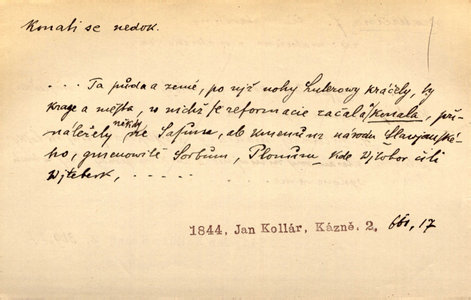 Konati se nedok.
. . . Ta půda a země, po njž nohy Luterowy kráčely, ty
krage a města, w nichž se reformacie začala a konala, při-
náležely někdy ne Sasům, ale kmenům národu Slawjanské-
ho, gmenowitě Sorbům, Plonům kde Wjtobor čili
Wjteberk, . . . . .
1844, Jan Kollár, Kázně. 2, 661, 17